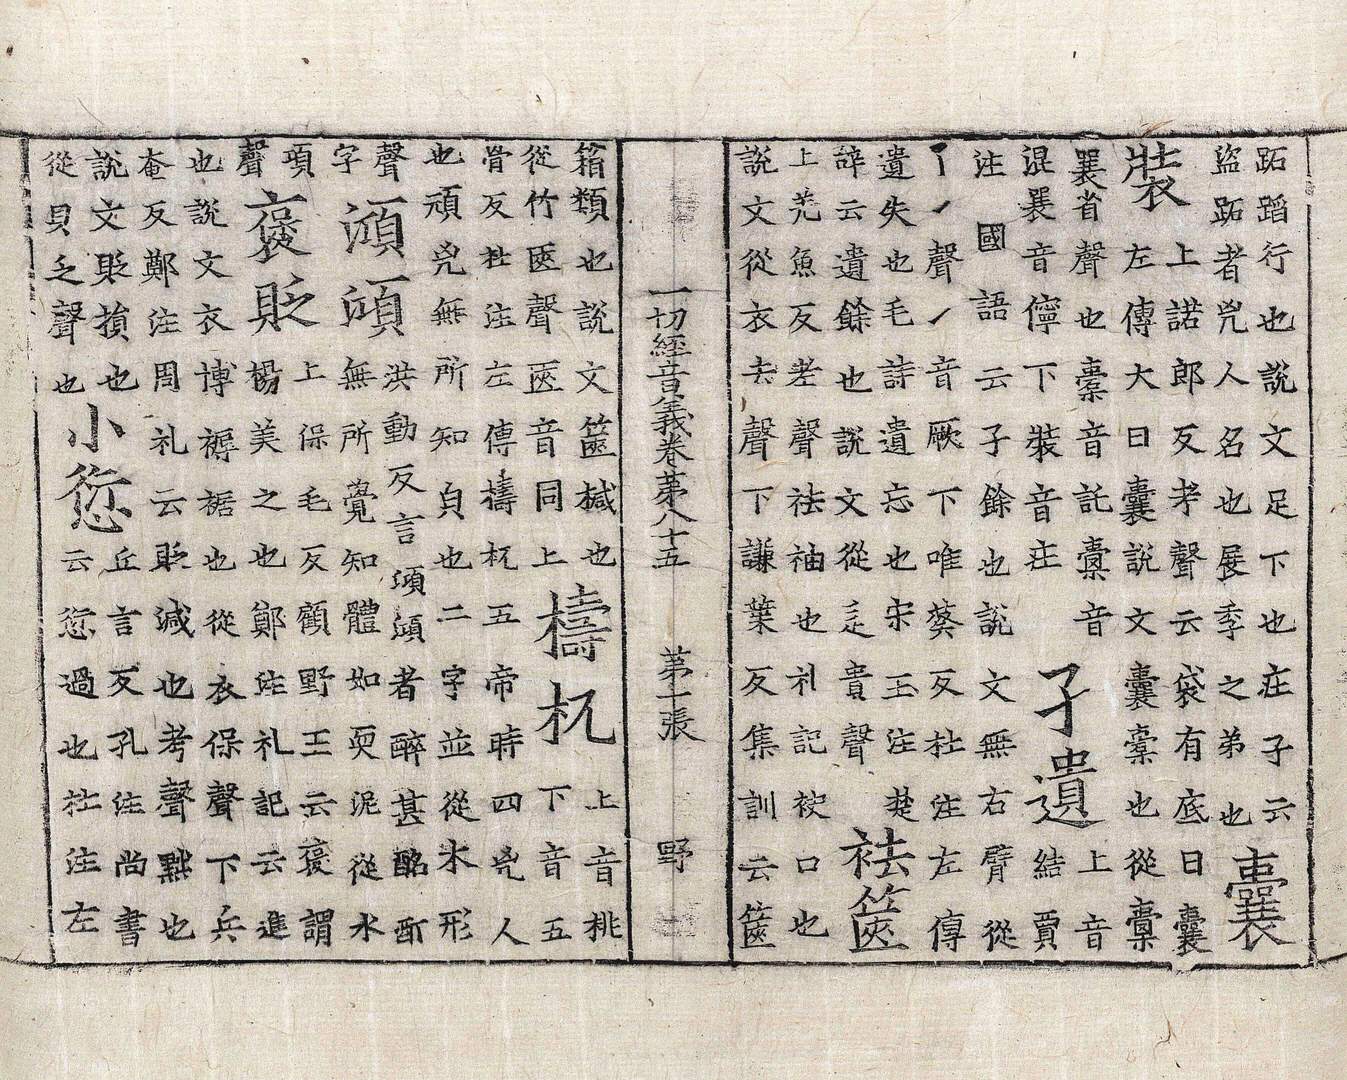 跖蹈行也說文足下也莊子云
盜跖者兇人名也展季之弟也
囊
裝
上諾郎反考聲云袋有底曰囊
左傳大曰囊說文囊橐也從㯻
襄省聲也橐音託㯻音
混襄音儜下裝音莊
孑遺
上音
結賈
注國語云孑餘也說文無右臂從
亅丿聲丿音厥下唯葵反杜注左傳
遺失也毛詩遺忘也宋玉注楚
辞云遺餘也說文從辵貴聲
袪篋
上羌魚反考聲袪袖也礼記袂口也
說文從衣去聲下謙葉反集訓云篋
一切經音義卷苐八十五 苐十一張 野
箱類也說文篋椷也
從竹匧聲匧音同上
檮杌
上音桃
下音五
骨反杜注左傳檮杌五帝時四兇人
也頑兇無所知皃也二字並從木形
聲
字
澒澒
洪動反言澒澒者醉甚酩酊
無所覺知體如耎泥從水
項
聲
褒貶
上保毛反顧野王云褒謂
楊美之也鄭注礼記云進
也說文衣博褥裾也從衣保聲下兵
奄反鄭注周礼云貶減也考聲黜也
說文貶損也
從貝乏聲也
小愆
丘言反孔注尚書
云愆過也杜注左